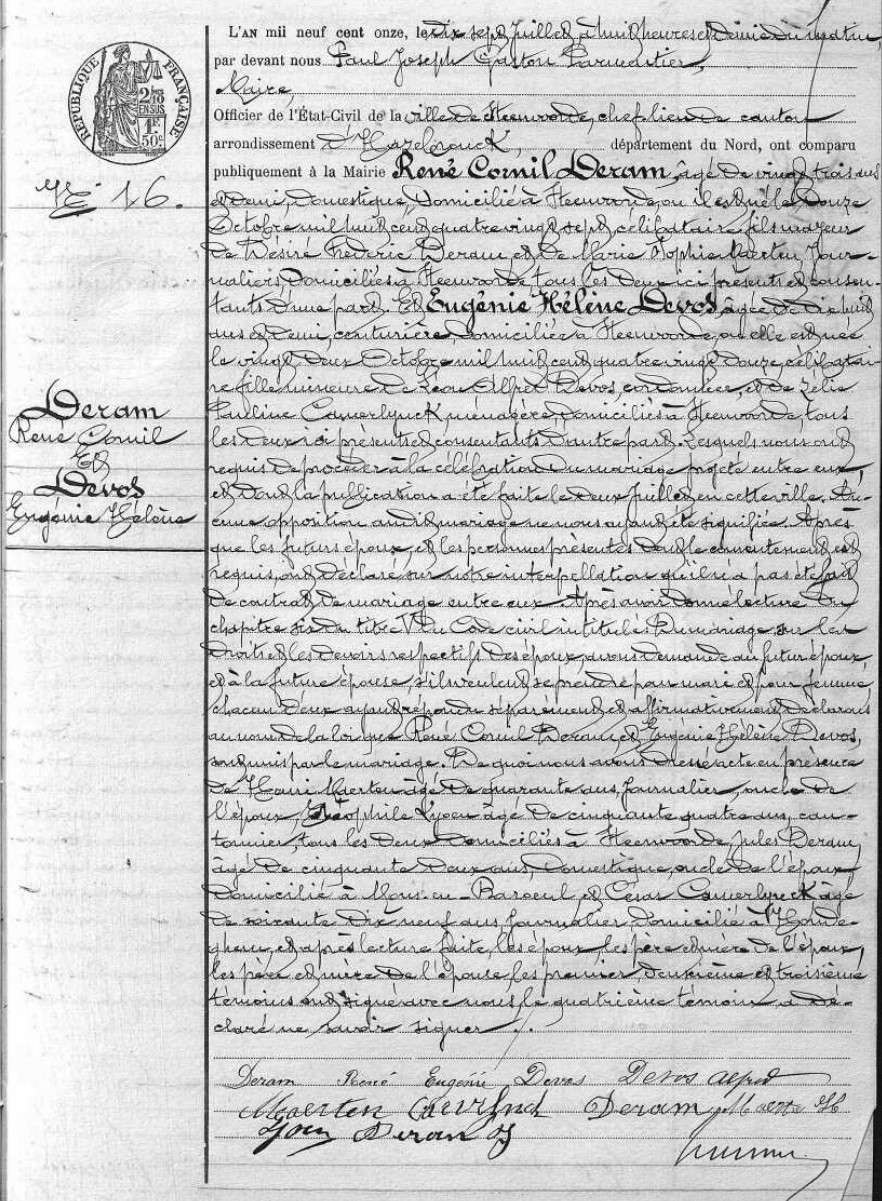 L'AN mil neuf cent onze, le dix sept Juillet à huit heures et demie du matin,
par devant nous Paul Joseph Gaston Parmentier,
Maire,
RÉPUBLIQUE FRANÇAISE
2/10 EN SUS
1F. 50c.
Officier de l'État-Civil de la ville de Steenvorde, chef lieu de canton
arrondissement d'Hazebrouck, département du Nord, ont comparu
publiquement à la Mairie René Cornil Deram, âgé de vingt trois ans
No 16.
et demi, domestique, domicilié à Steenvorde, où il est né le douze
Octobre mil huit cent quatre vingt sept, célibataire, fils majeur
de Désiré Fréderic Deram et de Marie Sophie Maerten, Jour-
naliers, domiciliés à Steenvorde, tous les deux ici présents et consen-
tants d'une part. Et Eugénie Hélène Devos, âgée de dix huit
ans et demi, couturière, domiciliée à Steenvorde, où elle est née
le vingt deux Octobre mil huit cent quatre vingt douze, célibatai-
re fille mineure de Léon Alfred Devos, cordonnier, et de Zélie
Pauline Camerlynck, ménagère, domiciliés à Steenvorde, tous
les deux ici présents et consentants d'autre part. Lesquels nous ont
requis de procéder à la célébration du mariage projeté entre eux
et dont la publication a été faite le deux Juillet en cette ville. Au-
cune opposition audit mariage ne nous ayant été signifiée. Après
que les futurs époux, et les personnes présentes dont le consentement est
requis, ont déclaré sur notre interpellation qu'il n'a pas été fait
de contrat de mariage entre eux. Après avoir donné lecture du
chapitre six du titre V du Code civil intitulé Du mariage, sur les
droits et les devoirs respectifs des époux, avons demandé au futur époux
et à la future épouse, s'ils veulent se prendre pour mari et pour femme,
chacun d'eux ayant répondu séparément et affirmativement, déclarons
au nom de la loi que René Cornil Deram et Eugénie Hélène Devos,
sont unis par le mariage. De quoi nous avons dressé acte en présence
de Henri Maerten âgé de quarante ans, Journalier, oncle de
l'époux, Théophile Lyoen âgé de cinquante quatre ans, can-
tonnier, tous les deux domiciliés à Steenvorde, Jules Deram,
âgé de cinquante deux ans, domestique, oncle de l'époux
domicilié à Mons-en-Baroeul et César Camerlynck âgé
de soixante dix neuf ans, journalier domicilié à Honde-
ghem, et après lecture faite, les époux, les père et mère de l'époux,
les père et mère de l'épouse, les premier deuxième et troisième
témoins ont signé avec nous, le quatrième témoin a dé-
claré ne savoir signer.
Deram
René Cornil
Et
Devos
Eugénie Hélène
Deram René Eugénie Devos Devos alfred
Maerten Deram Maerten H
Lyoen Deram